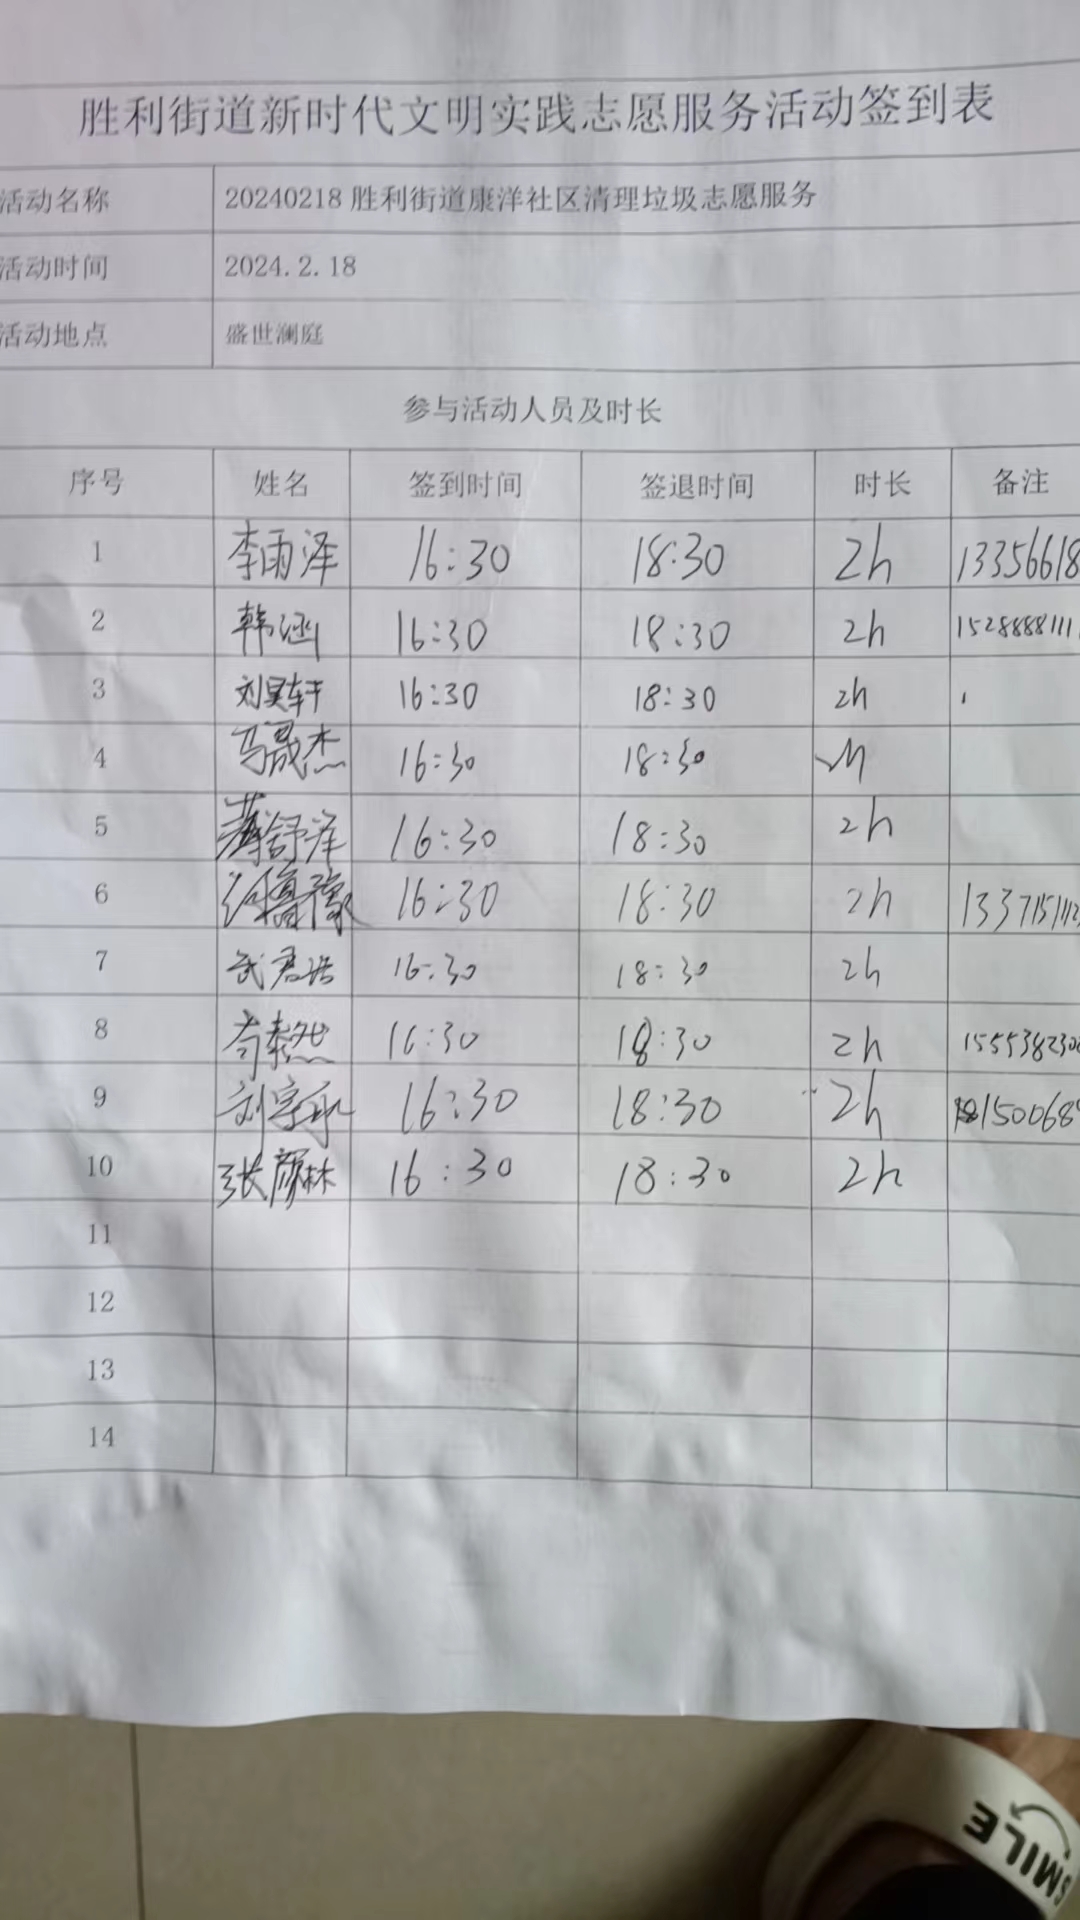 胜利街道新时代文明实践志愿服务活动签到表
活动名称 20240218胜利街道康洋社区清理垃圾志愿服务
活动时间 2024.2.18
活动地点 盛世澜庭
参与活动人员及时长
序号 姓名 签到时间 签退时间 时长 备注
1 李雨泽 16:30 18:30 2h 13356618
2 韩涵 16:30 18:30 2h 1528888111
3 刘昊轩 16:30 18:30 2h
4 马晟杰 16:30 18:30
5 舒泽 16:30 18:30 2h
6 16:30 18:30 2h
7 武君浩 16:30 18:30 2h
8 16:30 18:30 2h 155538230
9 刘宇承 16:30 18:30 2h
10 张颜林 16:30 18:30 2h
11
12
13
14
SMILE